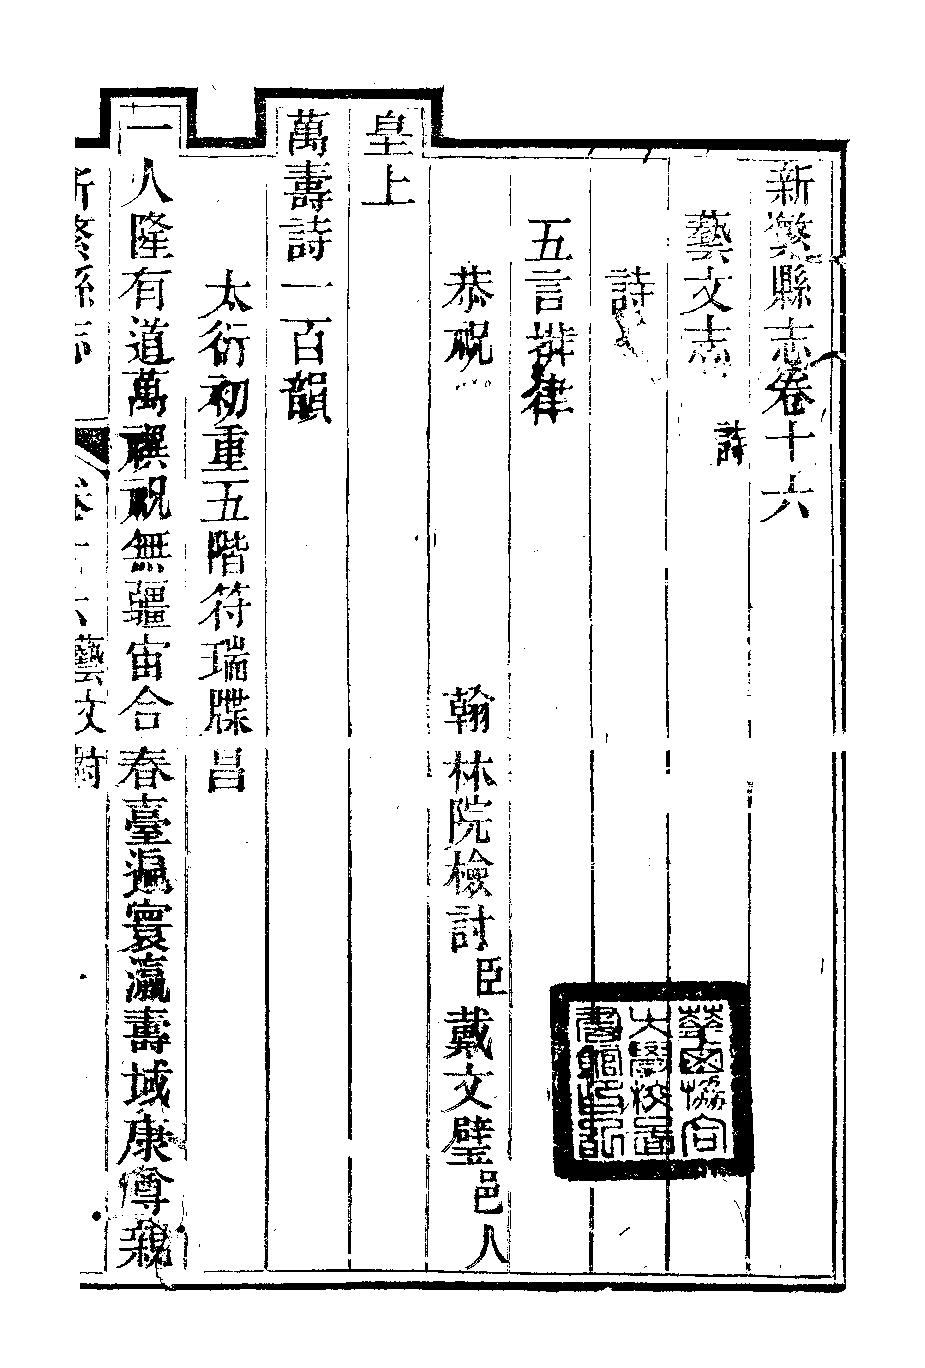 新繁縣志卷十六
藝文志 詩
詩
五言排律
恭祝 翰林院檢討臣戴文璧邑人
皇上
萬壽詩一百韻
太衍初重五階符瑞牒昌
一人隆有道萬禩祝無疆宙合春臺遍寰瀛壽域康尊親
新繁縣志 卷十六藝文詩
華西協合
大學校圖
書館印記